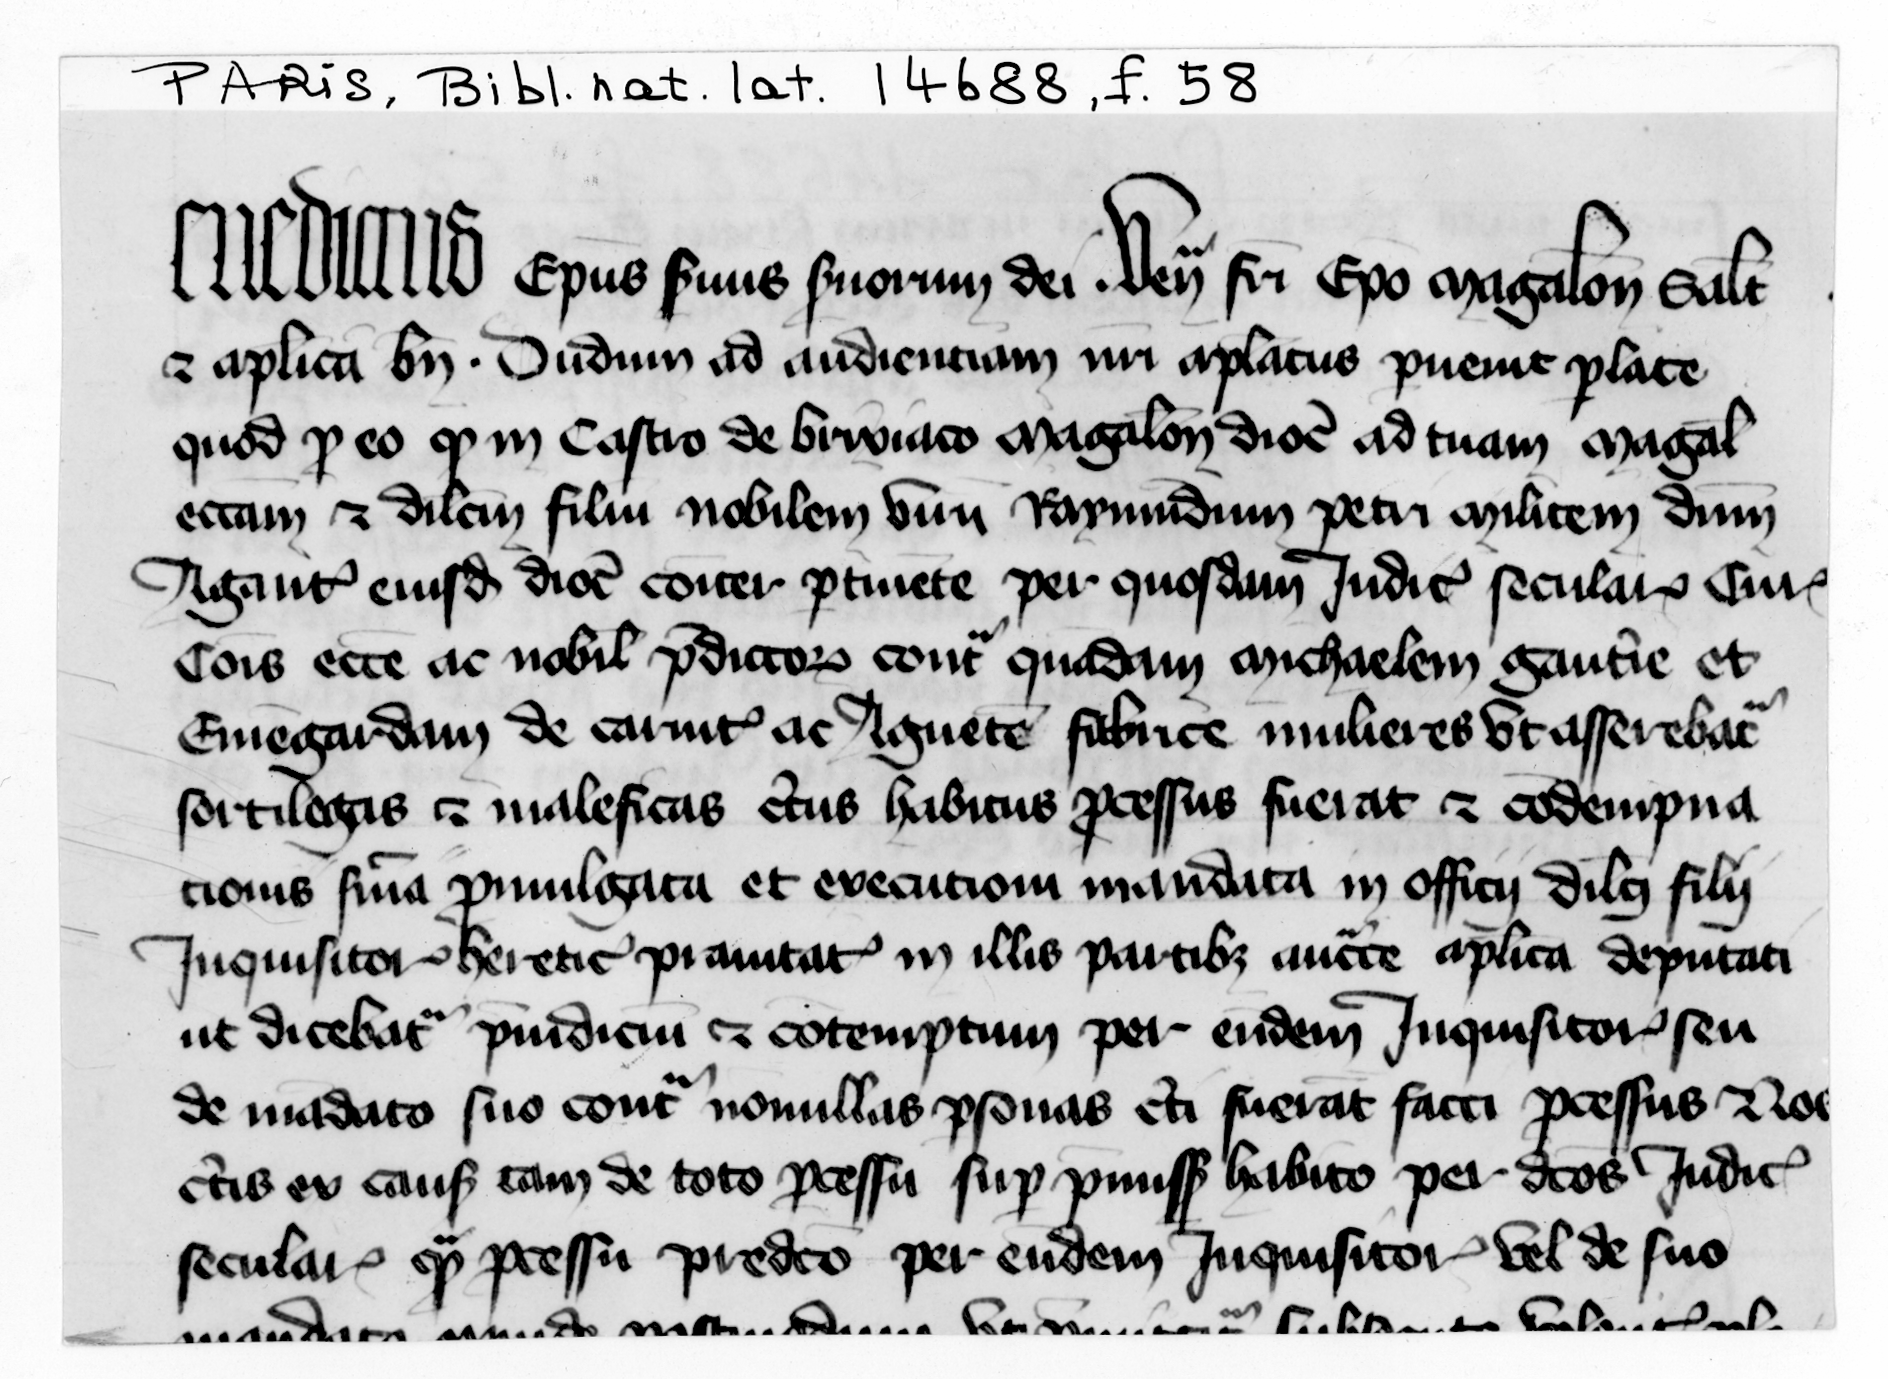 PARIS, Bibl. nat. lat. 14688, f. 58
Epus suus suorum dei. Ven fri Epo Magalon Salt
et aplica bn. Dudum ad audientiam nri aplatus puenit plate
quod p eo qp in Castro de Magalon dioc ad tuam Magal
eccam et dilcm filiu nobilem viru Raymundum petri militem dnm
Agant eiusd dioc coiter ptinete per quosdam Judic secular Cur
Cois ecce ac nobil pdictor cont quadam Michaelem gautie et
Emegardam de ac Agnete fabrice mulieres vt asserebat
sortilegas et maleficas ctus habitus pcessus fuerat et codempna
tionis snia pmulgata et executioni mandata in officii dilci filii
Inquisitor heretic prauitat in illis partibz aucte aplica deputati
ut dicebat piudiciu et cotemptum per eundem Inquisitor seu
de madato suo cont nonullas psonas cti fuerat facti pcessus et Nos
ctis ex caus tam de toto pcessu sup pmiss habito per dcos Judic
secular qp pcessu predco per eundem Inquisitor vel de suo